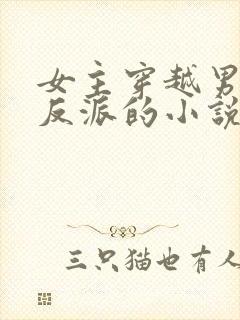 女主穿越男
反派的小說
三只猫也有人